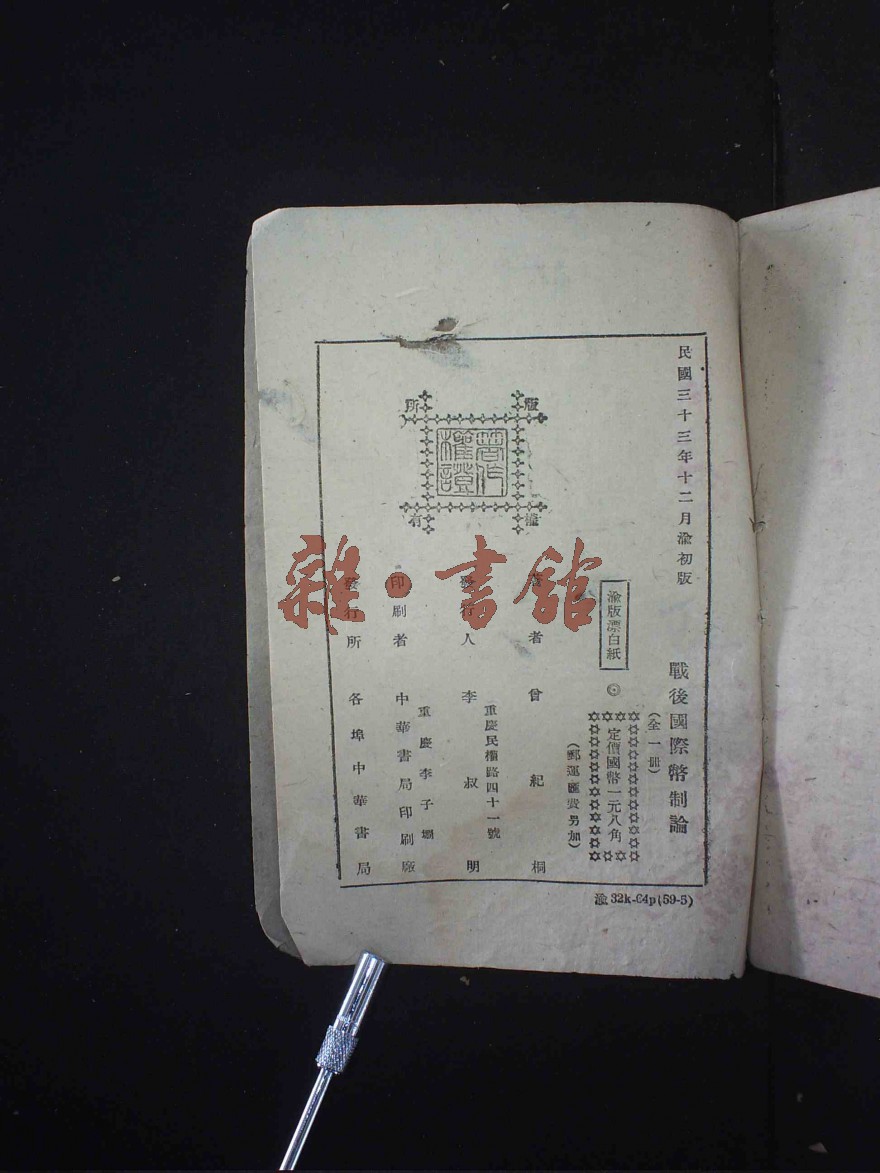 民國三十三年十二月渝初版
戰後國際幣制論
(全一冊)
渝版漂白紙
◎
定價國幣一元八角
(郵運匯費另加)
著者 曾紀桐
發行人 李叔明
重慶民權路四十一號
印刷者 中華書局印刷廠
重慶李子壩
發行所 各埠中華書局
版權所有
著作權證
渝32k-64p(59-5)
雜·書館